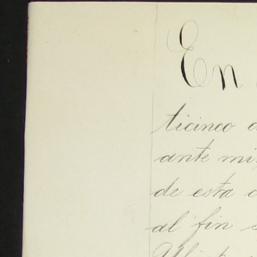 En
ticinco
ante mi
de esta
al fin